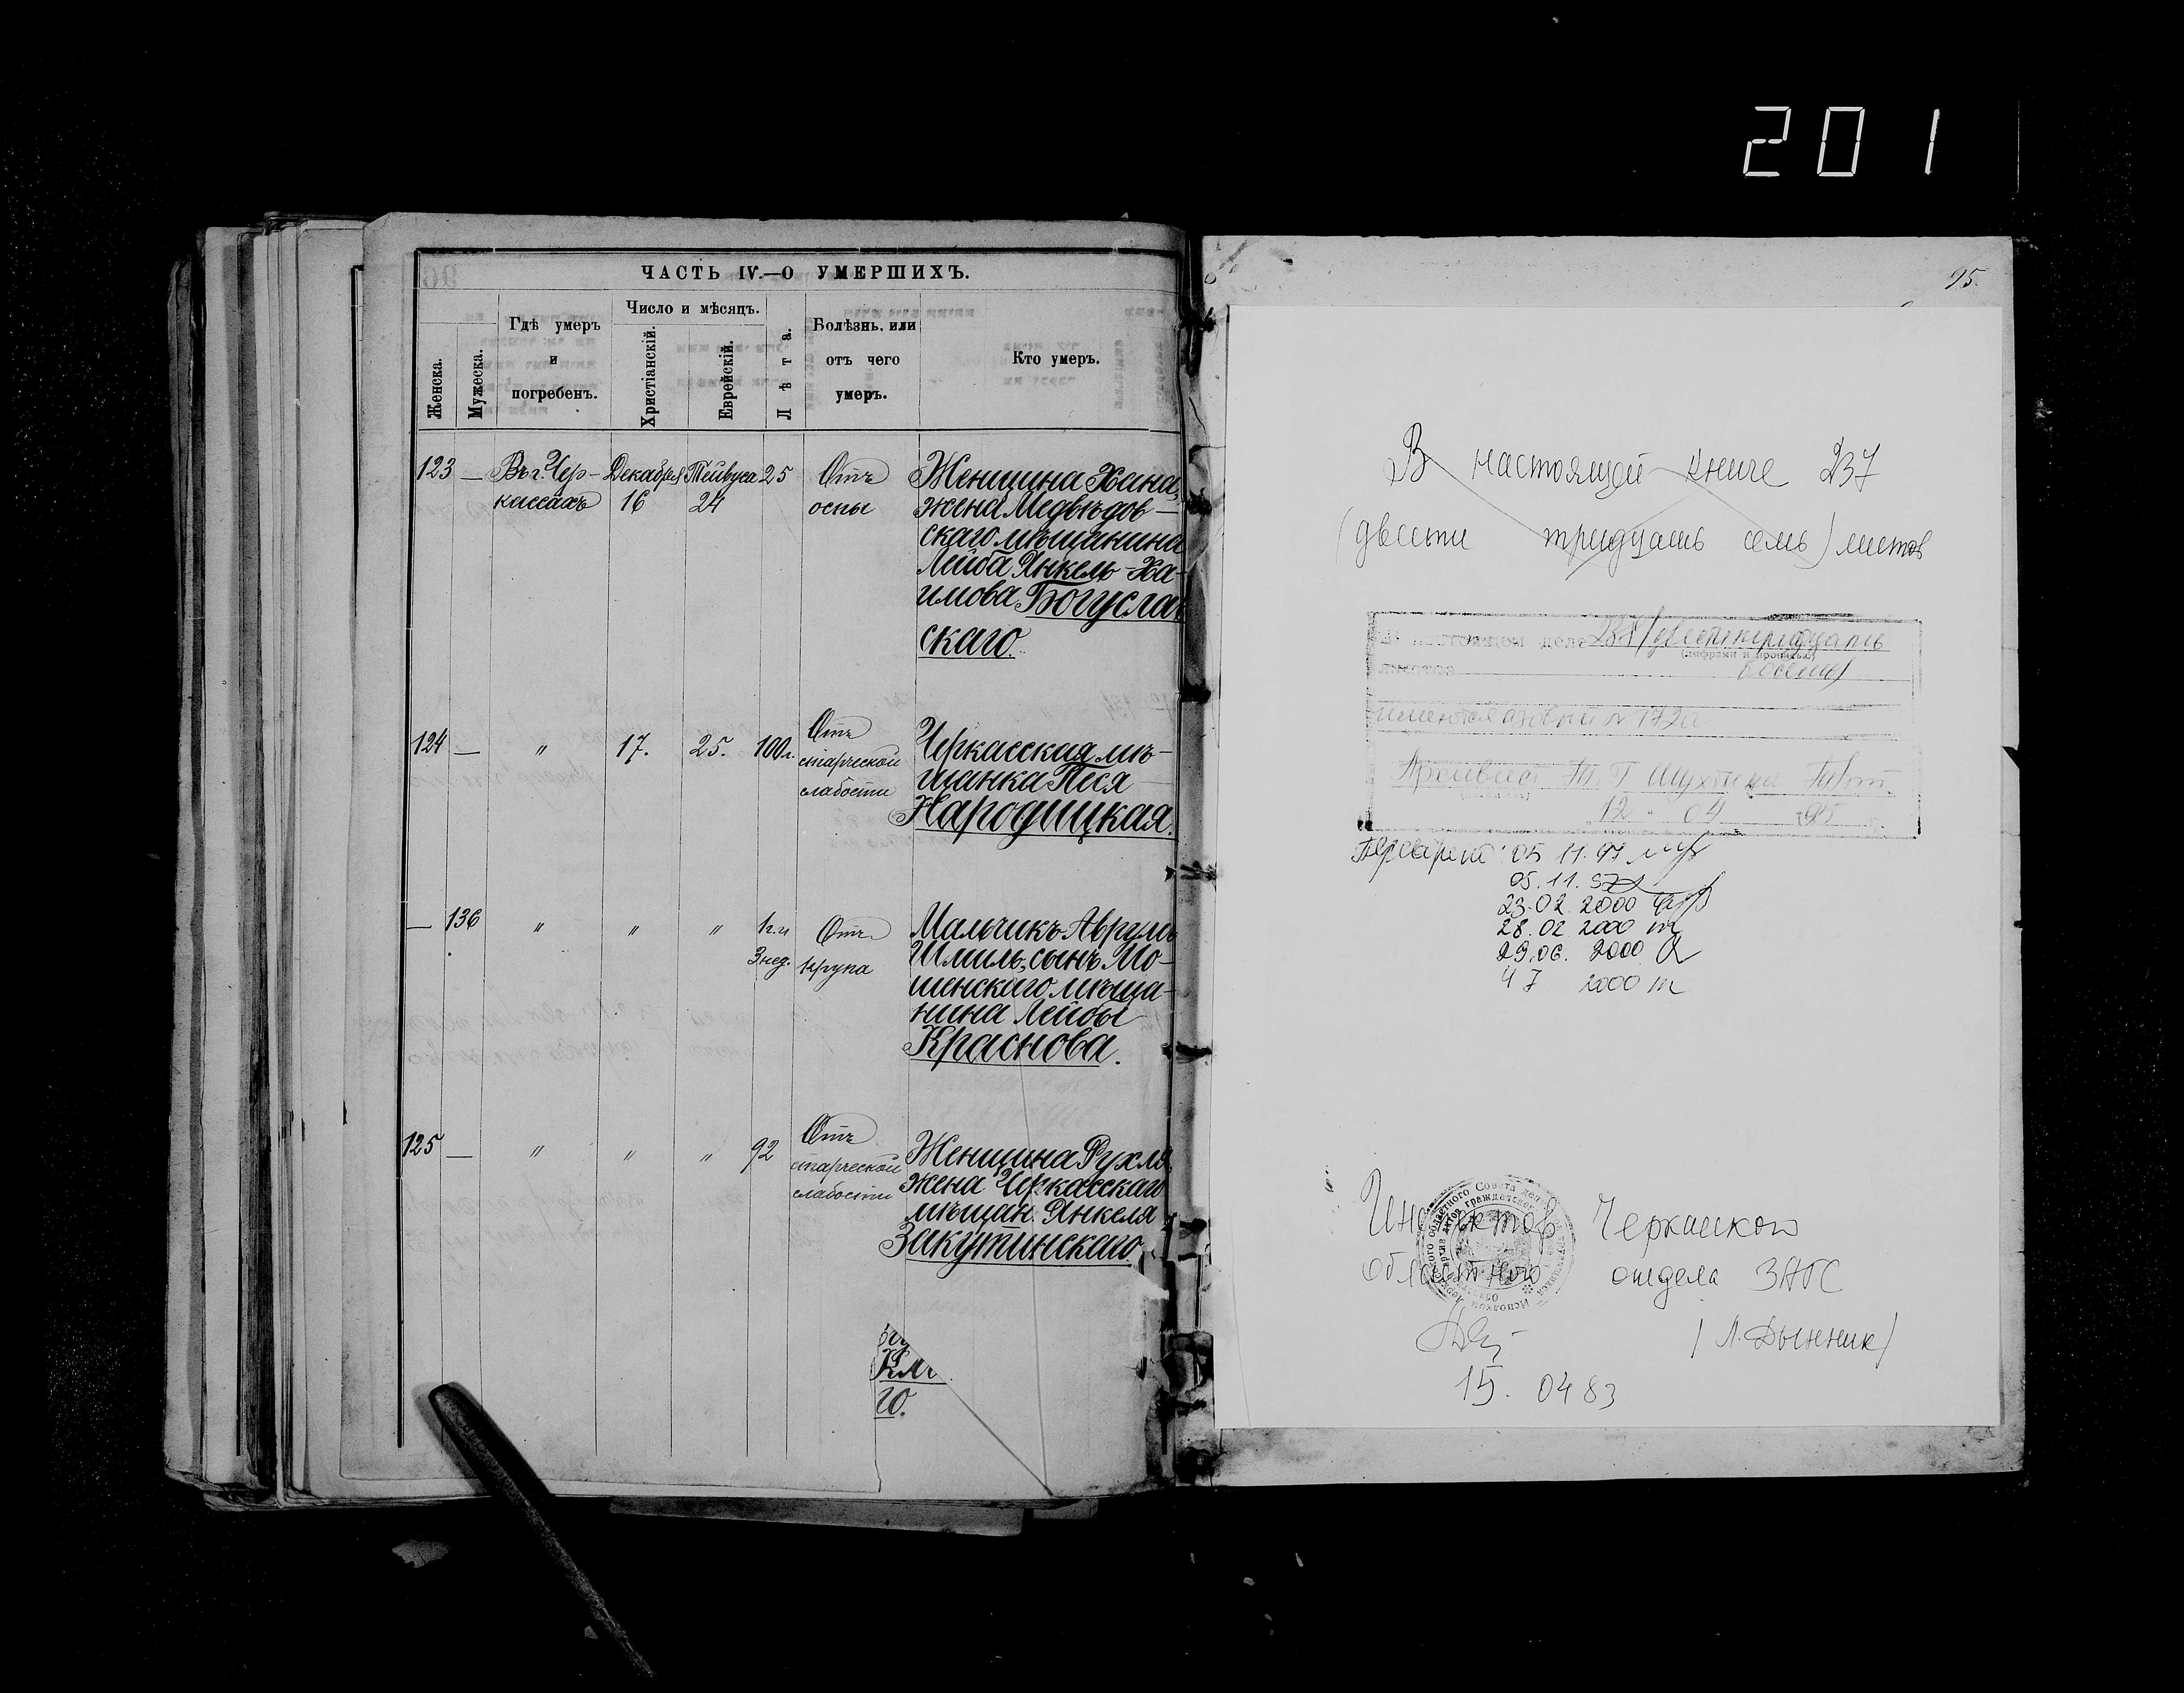 201
ЧАСТЬ IV.—О УМЕРШИХЪ.
Женска.
Мужеска.
Гдѣ умеръ
и
погребенъ.
Число и мѣсяцъ.
Христіанскій.
Еврейскій.
Лѣта.
Болѣзнь, или
отъ чего
умеръ.
Кто умеръ.
123 — Въ г. Чер- Декабря Тейвуса 25 Отъ Женщина Хана,
кассахъ 16 24 оспы жена Медвѣдов-
скаго мѣщанина
Лейба Янкель-Ха-
имова Богуслав
скаго.
124 — " 17. 25. 100 л. Отъ старческой слабости Черкасская мѣ-
щанка Песя
Народицкая.
— 136 " " " 1 г. и Отъ Мальчикъ Аврумъ
3 нед. крупа Шмиль, сынъ Мо-
шенскаго мѣща-
нина Лейбы
Краснова.
125 — " " " 92 Отъ старческой слабости Женщина Рухля,
жена Черкасскаго
мѣщан. Янкеля
Закутинскаго.
го.
95.
В настоящей книге 237
(двести тридцать семь) листов
В настоящем деле 238 /двести тридцать
(цифрами и прописью)
листов восемь/
имеются литерный № 172а
Архивист
12 04 95
Проверено: 05 11. 97
05.11. 97
23.02 2000
28.02 2000
29.06. 2000
4 7 2000
Инспектор Черкасского
областного отдела ЗАГС
/Л. Дынник/
15. 04 83